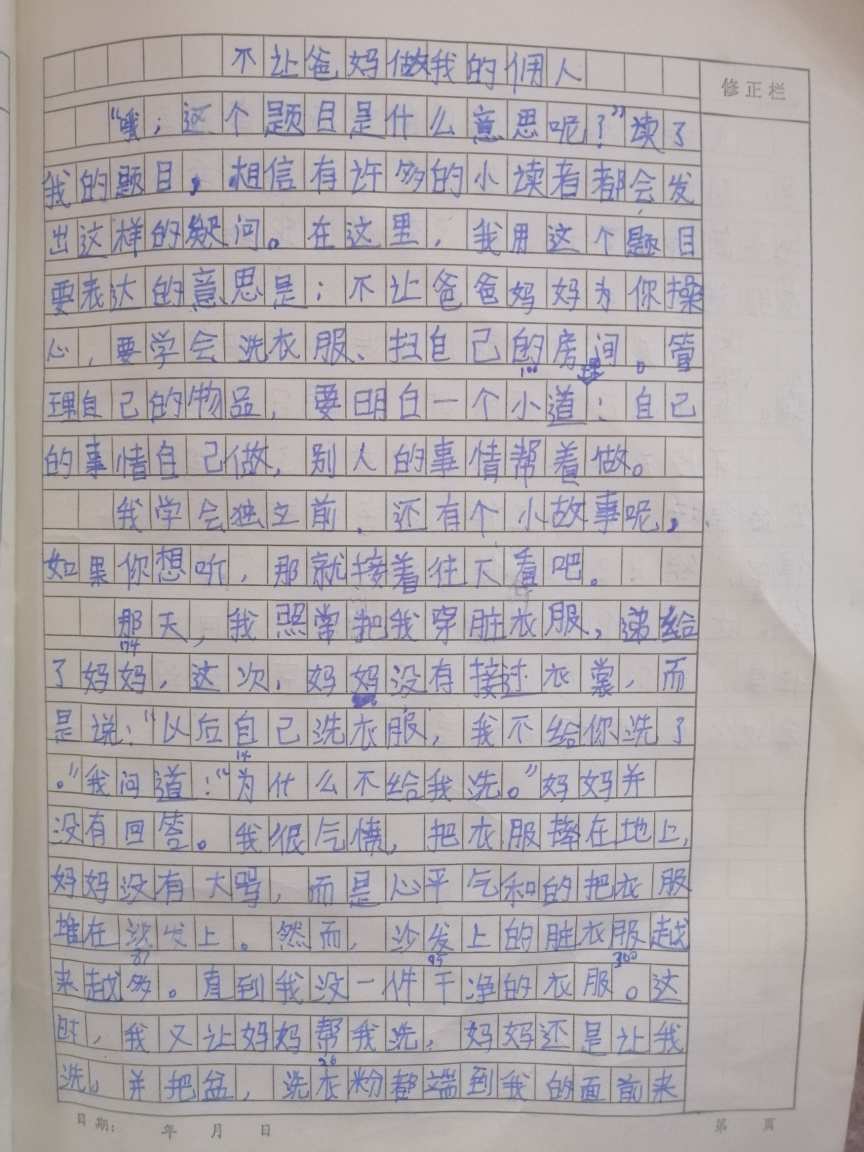 不让爸妈做我的佣人
修正栏
“哦；这个题目是什么意思呢？”读了
我的题目，相信有许多的小读者都会发
出这样的疑问。在这里，我用这个题目
要表达的意思是：不让爸爸妈妈为你操
心，要学会洗衣服、扫自己的房间。管
理自己的物品，要明白一个小道理：自己
的事情自己做，别人的事情帮着做。
我学会独立前，还有个小故事呢，
如果你想听，那就接着往下看吧。
那天，我照常把我穿脏衣服，递给
了妈妈，这次，妈妈没有接过衣裳，而
是说：“以后自己洗衣服，我不给你洗了
。”我问道：“为什么不给我洗。”妈妈并
没有回答。我很气愤，把衣服摔在地上，
妈妈没有大骂，而是心平气和的把衣服
堆在沙发上。然而，沙发上的脏衣服越
来越多。直到我没一件干净的衣服。这
时，我又让妈妈帮我洗，妈妈还是让我
洗，并把盆，洗衣粉都端到我的面前来
日期： 年 月 日
第 页